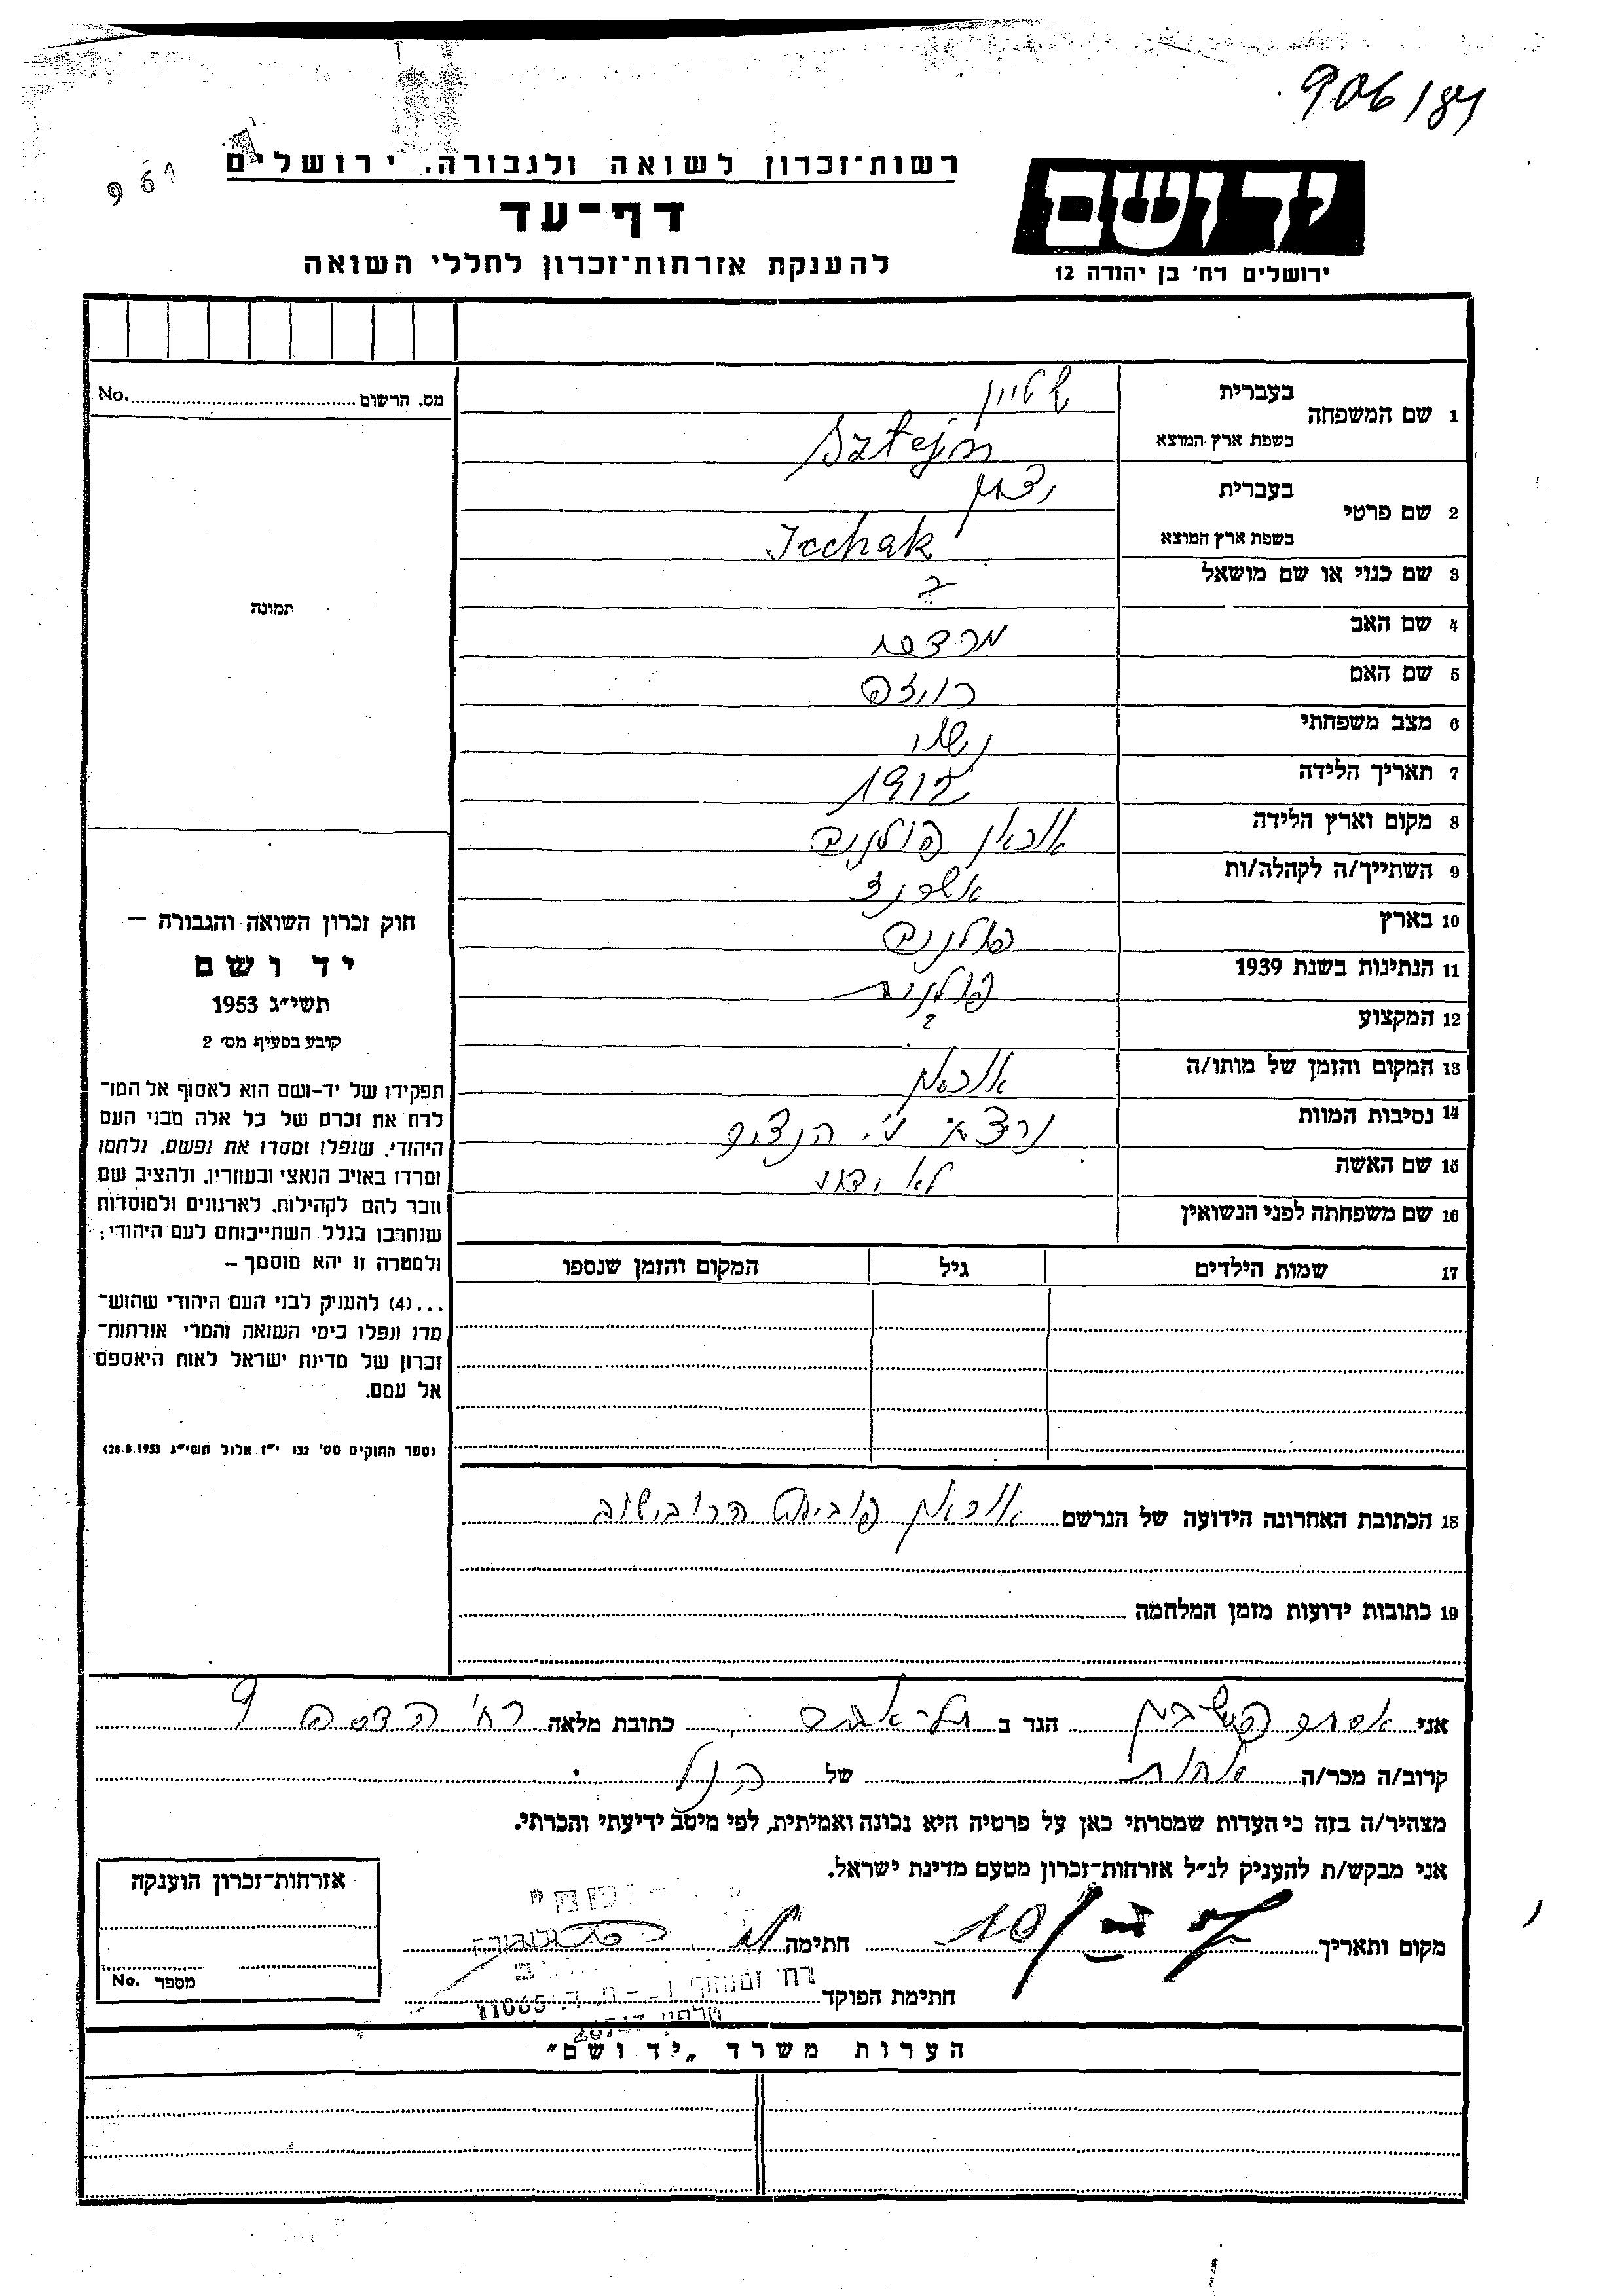 906/84
961
רשות־זכרון לשואה ולגבורה, ירושלים
דף־עד
להענקת אזרחות־זכרון לחללי השואה
יד ושם
ירושלים רח׳ בן יהודה 12
מס. הרשום No.
תמונה
1 שם המשפחה בעברית שטיין
בשפת ארץ המוצא Sztejn
2 שם פרטי בעברית יצחק
בשפת ארץ המוצא Icchak
3 שם כנוי או שם מושאל ?
4 שם האב מרדכי
5 שם האם רויזה
6 מצב משפחתי נשוי
7 תאריך הלידה 1912
8 מקום וארץ הלידה פולניה
9 השתייך/ה לקהלה/ות
10 בארץ פולניה
11 הנתינות בשנת 1939 פולנית
12 המקצוע ?
13 המקום והזמן של מותו/ה
14 נסיבות המוות נרצח ע״י הנצים
15 שם האשה לא ידוע
16 שם משפחתה לפני הנשואין
17 שמות הילדים גיל המקום והזמן שנספו
18 הכתובת האחרונה הידועה של הנרשם הרובישוב
19 כתובות ידועות מזמן המלחמה
חוק זכרון השואה והגבורה –
יד ושם
תשי״ג 1953
קובע בסעיף מס׳ 2
תפקידו של יד-ושם הוא לאסוף אל המו־
לדת את זכרם של כל אלה מבני העם
היהודי, שנפלו ומסרו את נפשם, נלחמו
ומרדו באויב הנאצי ובעוזריו, ולהציב שם
וזכר להם לקהילות, לארגונים ולמוסדות
שנחרבו בגלל השתייכותם לעם היהודי;
ולמטרה זו יהא מוסמך –
...(4) להעניק לבני העם היהודי שהוש־
מדו ונפלו בימי השואה והמרי אזרחות־
זכרון של מדינת ישראל לאות היאספם
אל עמם.
(ספר החוקים מס׳ 132 י״ז אלול תשי״ג 28.8.1953)
אני אסתר הגר ב תל־אביב כתובת מלאה רח׳ הדסה 9
קרוב/ה מכר/ה אחות של הנ״ל
מצהיר/ה בזה כי העדות שמסרתי כאן על פרטיה היא נכונה ואמיתית, לפי מיטב ידיעתי והכרתי.
אני מבקש/ת להעניק לנ״ל אזרחות־זכרון מטעם מדינת ישראל.
מקום ותאריך חתימה
חתימת הפוקד
רח׳ זמנהוף
ת. ד. 11065
טלפון
אזרחות־זכרון הוענקה
מספר No.
הערות משרד „יד ושם״